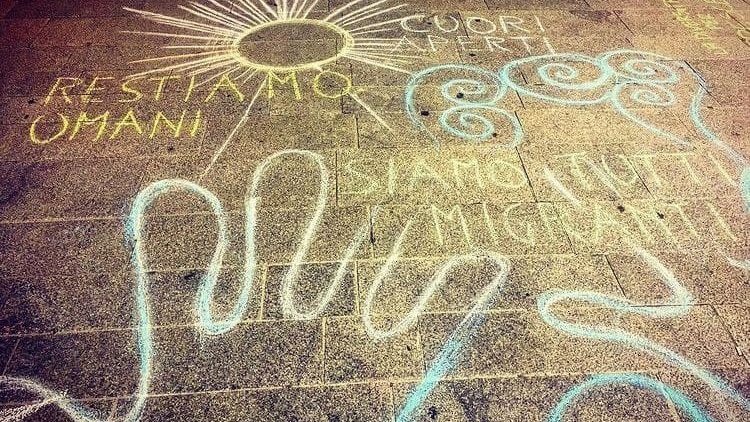 CUORI
APERTI
RESTIAMO
UMANI
SIAMO TUTTI
MIGRANTI